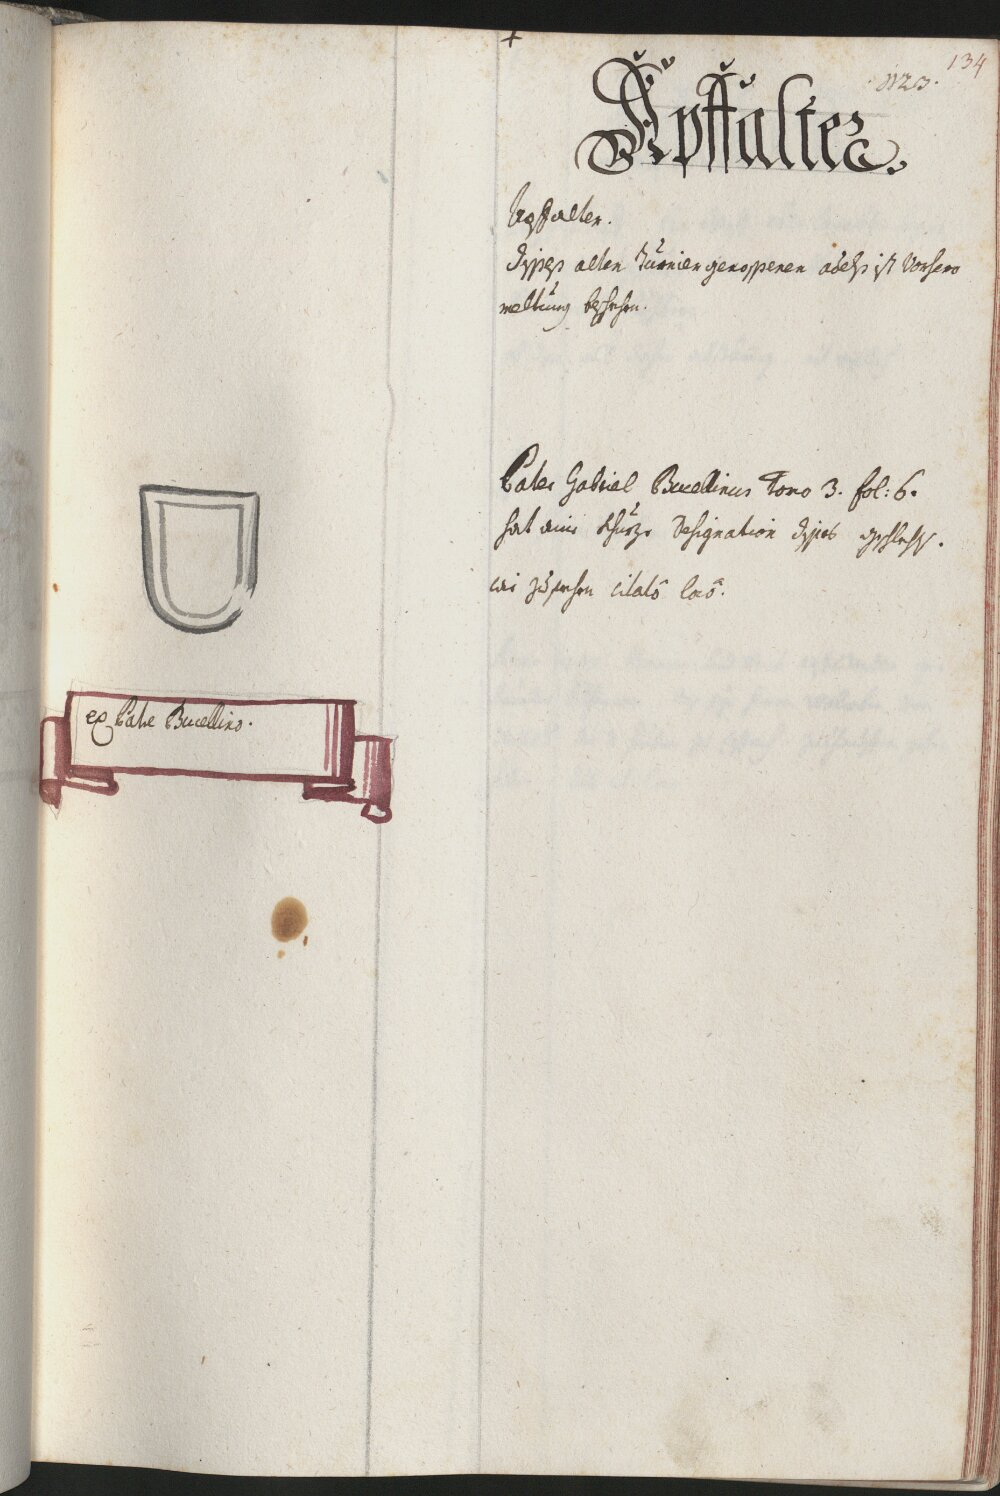 134
1123.
Äpffalter.
Apffalter.
dißes alten Turniergenossenen adels ist Vorhero
meltung beschehen.
Pater Gabriel Bucellinus Tomo 3. fol: 6.
hat ain khurze Designation dißes geschlechts.
wie zu sehen citatô locô.
ex Patre Bucellino.